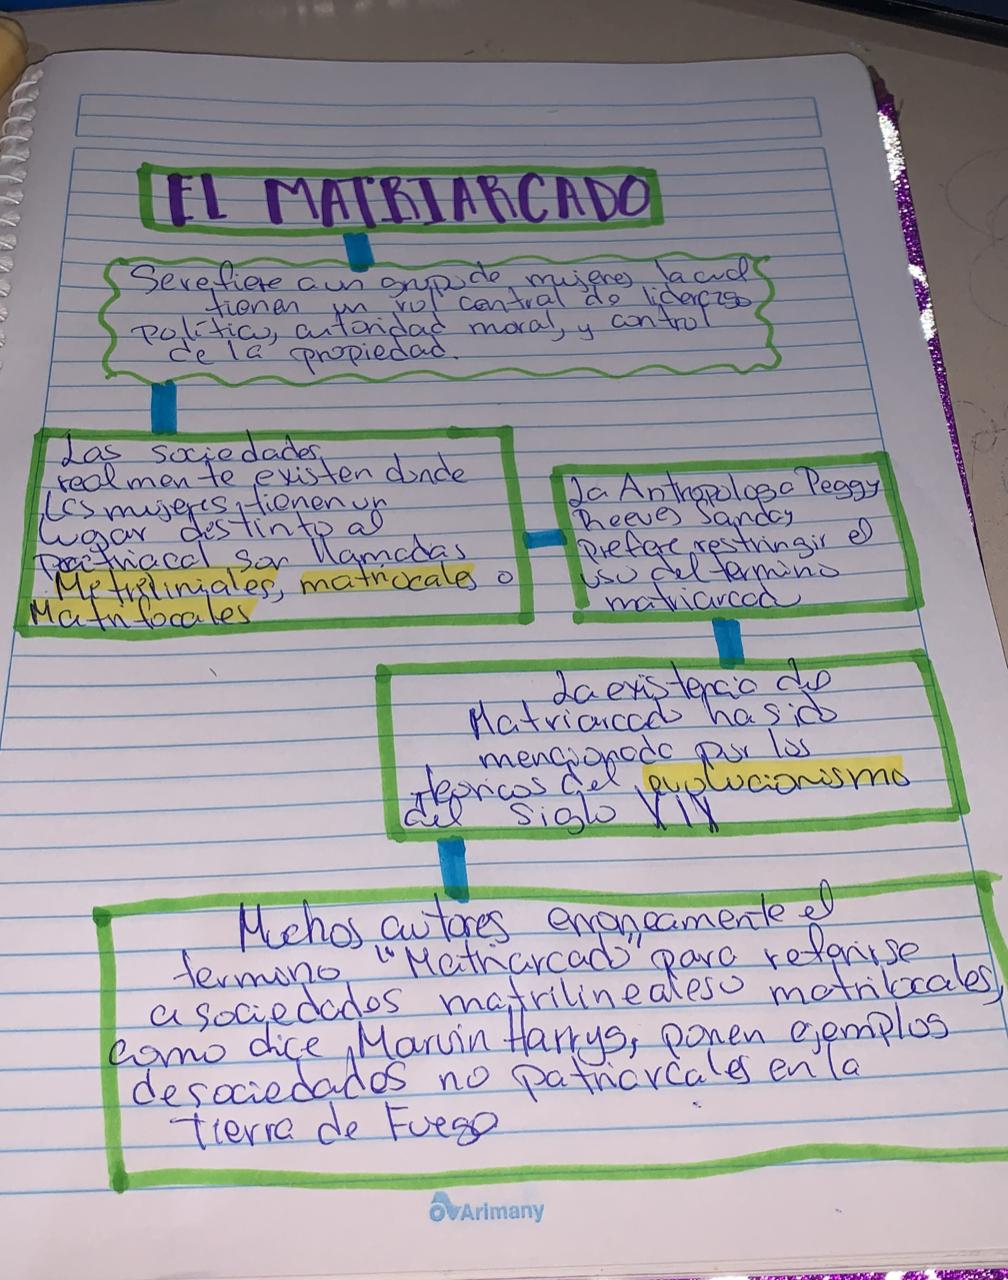 EL MATRIARCADO
Se refiere a un grupo de mujeres, la cual
tienen un rol central de liderazgo
político, autoridad moral, y control
de la propiedad.
Las sociedades
realmente existen donde
las mujeres tienen un
lugar destinto al
patriacal son llamadas
Metreliniales, matriocales o
Matrifocales
La Antropologa Peggy
Reeves Sanday
prefere restringir el
uso del termino
matriarcad
La existencia del
Matriarcado ha sido
mencionado por los
teoricos del evolucionismo
del Siglo XIX
Muchos autores erroneamente el
termino "Matriarcado" para referirse
a sociedades matrilineales o matrilocales,
como dice, Marvin Harrys, ponen ejemplos
de sociedades no patriarcales en la
tierra de Fuego
Arimany